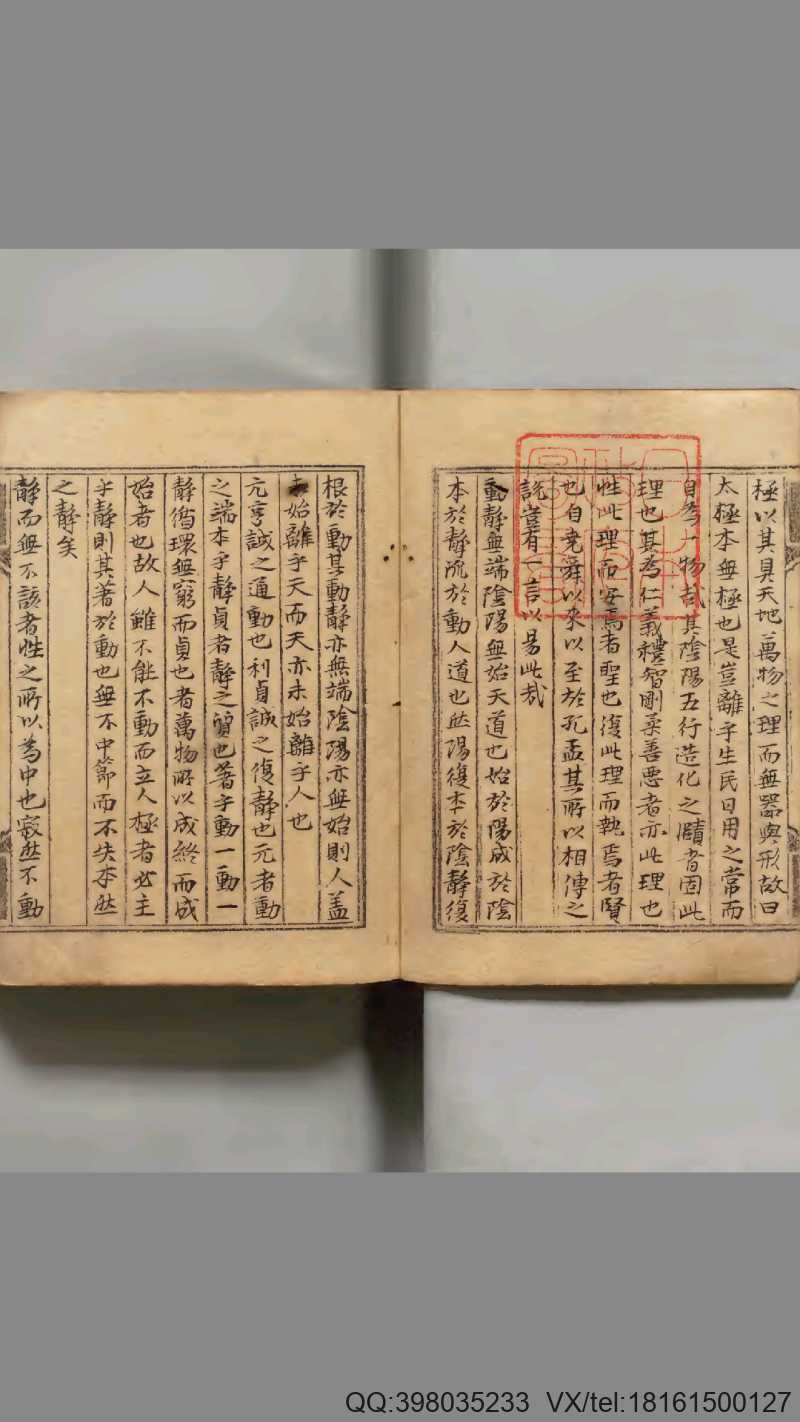 極以其具天地萬物之理而無器與形故曰
太極本無極也是豈離乎生民日用之常而
自為一物哉其陰陽五行造化之賾者固此
理也其為仁義禮智剛柔善惡者亦此理也
性此理而安焉者聖也復此理而執焉者賢
也自堯舜以來以至於孔孟其所以相傳之
說豈有一言以易此哉
動靜無端陰陽無始天道也始於陽成於陰
本於靜流於動人道也然陽復本於陰靜復
根於動其動靜亦無端陰陽亦無始則人蓋
未始離乎天而天亦未始離乎人也
元亨誠之通動也利貞誠之復靜也元者動
之端本乎靜貞者靜之質也著乎動一動一
靜循環無窮而貞也者萬物所以成終而成
始者也故人雖不能不動而立人極者必主
乎靜則其著於動也無不中節而不失本然
之靜矣
靜而無不該者性之所以為中也寂然不動
QQ:398035233 VX/tel:18161500127